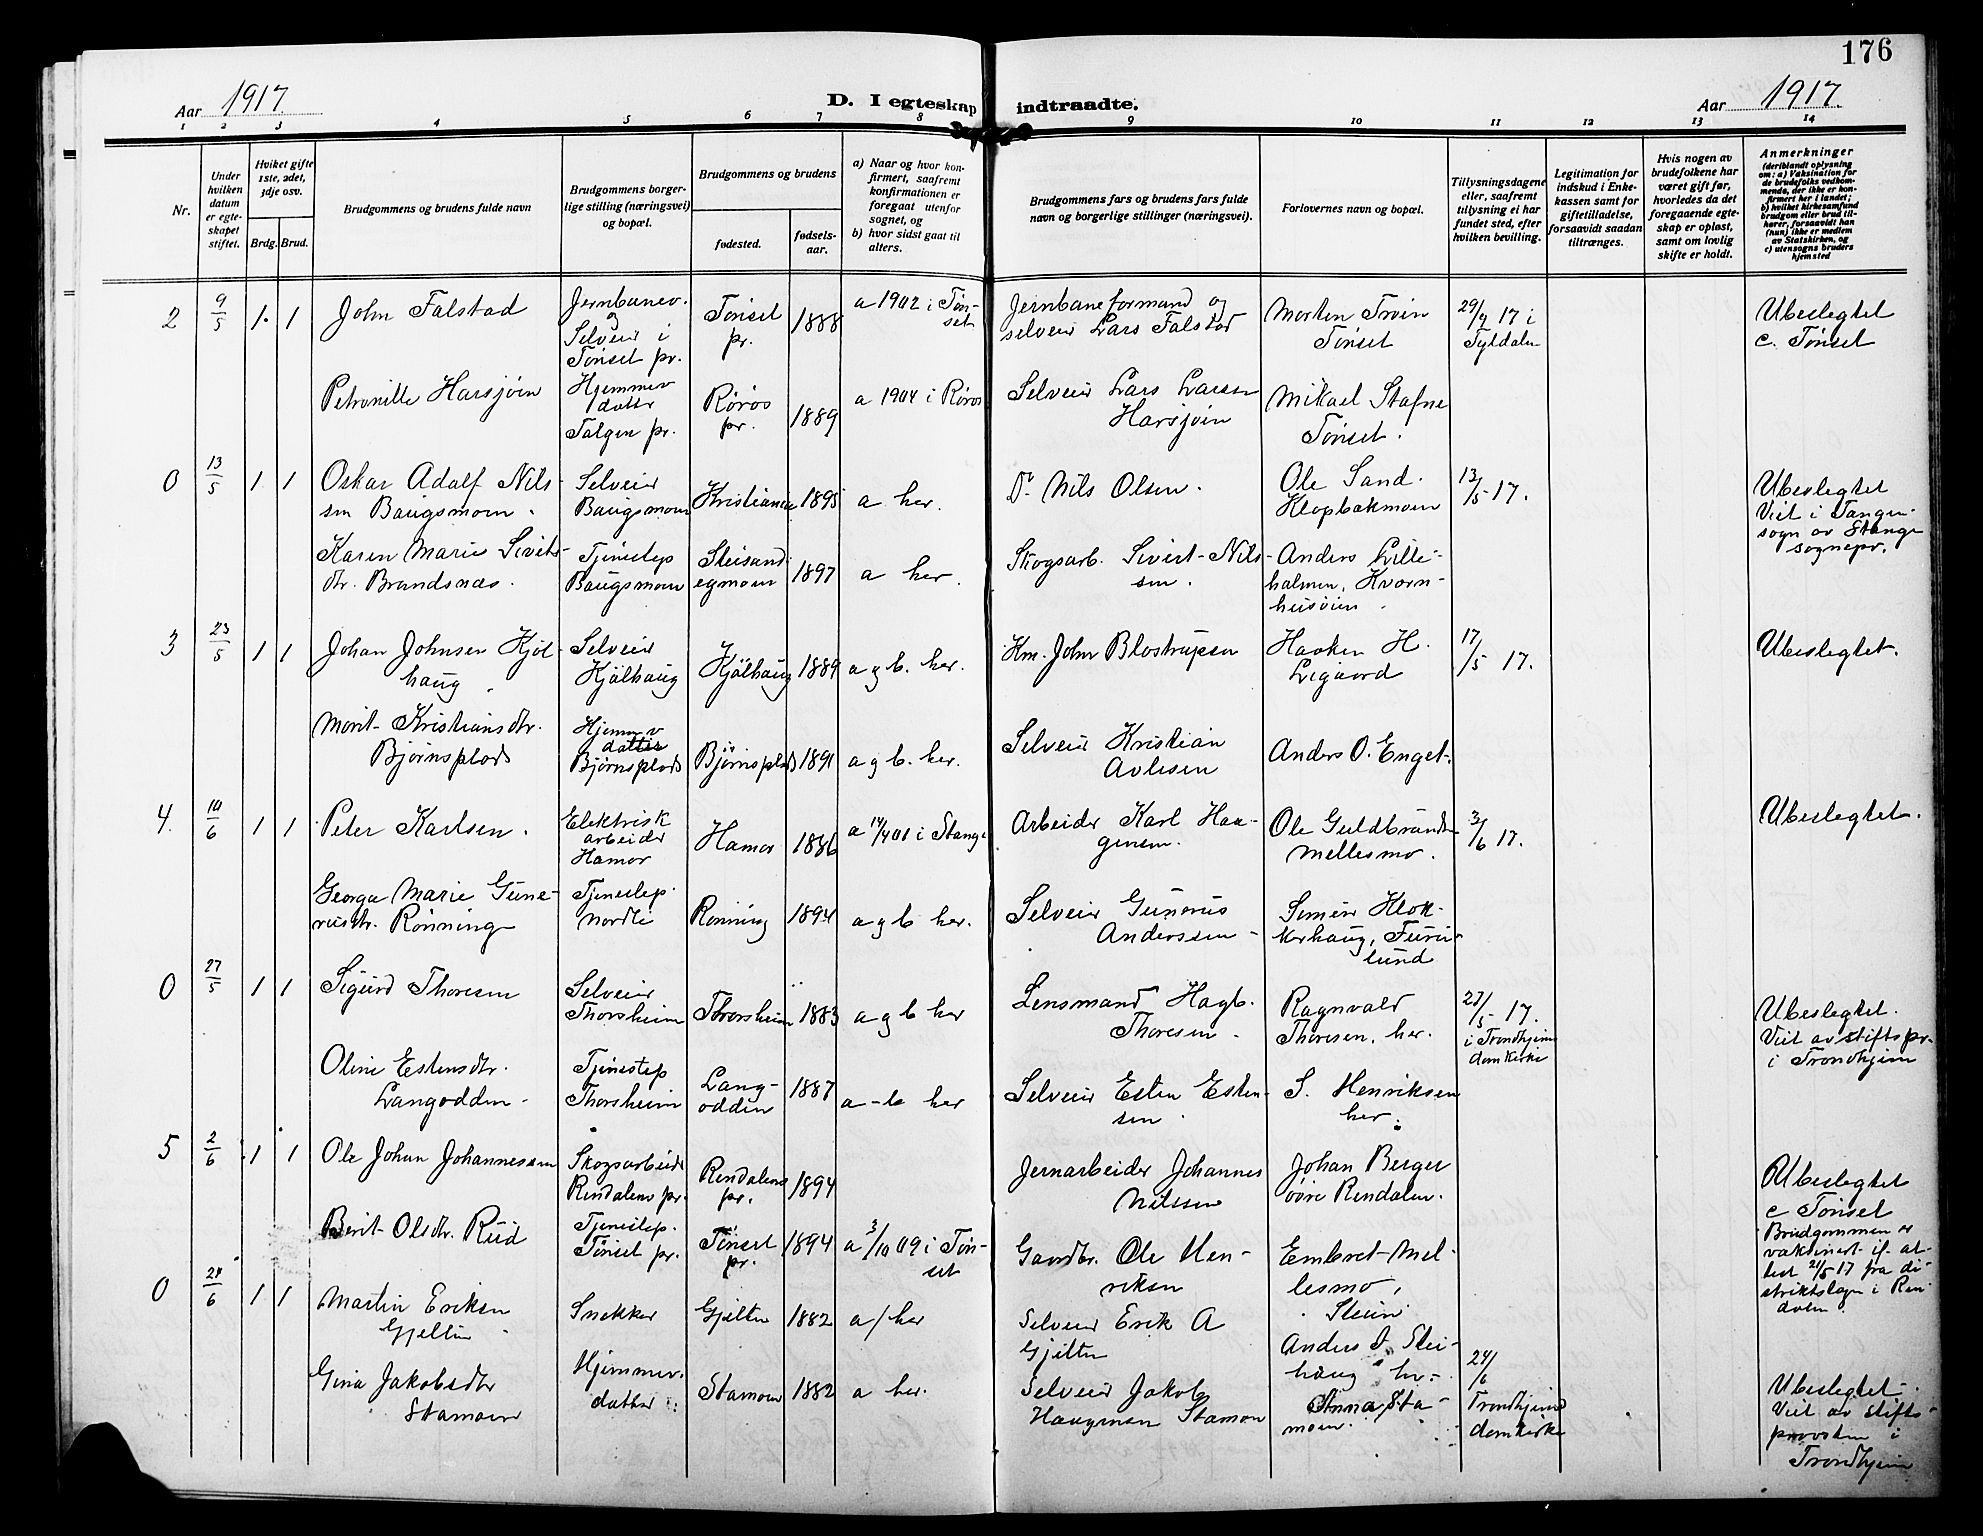 176
Aar 1917.
D. I egteskap indtraadte.
Aar 1917.
1 2 3 4 5 6 7 8 9 10 11 12 13 14
Nr.
Under
hvilken
datum
er egte-
skapet
stiftet.
Hviket gifte
1ste, 2det,
3dje osv.
Brdg. Brud.
Brudgommens og brudens fulde navn
Brudgommens borger-
lige stilling (næringsvei)
og bopæl.
Brudgommens og brudens
fødested.
fødsels-
aar.
a) Naar og hvor kon-
firmert, saafremt
konfirmationen er
foregaat utenfor
sognet, og
b) hvor sidst gaat til
alters.
Brudgommens fars og brudens fars fulde
navn og borgerlige stillinger (næringsvei).
Forlovernes navn og bopæl.
Tillysningsdagene
eller, saafremt
tillysning ei har
fundet sted, efter
hvilken bevilling.
Legitimation for
indskud i Enke-
kassen samt for
giftetilladelse,
forsaavidt saadan
tiltrænges.
Hvis nogen av
brudefolkene har
været gift før,
hvorledes da det
foregaaende egte-
skap er opløst,
samt om lovlig
skifte er holdt.
Anmerkninger
(deriblandt oplysning
om: a) Vaksination for
de brudefolks vedkom-
mende, der ikke er kon-
firmert her i landet;
b) hvilket kirkesamfund
brudgom eller brud til-
hører, forsaavidt han
(hun) ikke er medlem
av Statskirken, og
c) utensogns bruders
hjemsted
2 9/5 1. 1
John Falstad
Jernbanev.
og
Selveier i
Tønset pr.
Tønset
pr.
1888
a 1902 i Tøn-
set
Jernbaneformand og
selveier Lars Falstad
Morten Trøen
Tønset
29/4 17 i
Tyldalen
Ubeslegtet
c. Tønset
Petronille Harsjøen
Hjemmev
datter
Tolgen pr.
Røros
pr.
1889
a 1904 i Røros
Selveier Lars Larsen
Harsjøen
Mikael Stafne
Tønset.
0 13/5 1 1
Oskar Adolf Nils-
sen Baugsmoen.
Selveier
Baugsmoen
Kristiania
1895
a her.
Dr. Nils Olsen.
Ole Sand.
Klopbakmoen
13/5 17.
Ubeslegtet
Viet i Tangen
sogn av Stange
sognepr.
Karen Marie Siverts-
dtr. Brandsnæs.
Tjenestep
Baugsmoen
1897
a her.
Skogsarb. Sivert Nils-
sen.
Anders Lille-
holmen, Kvern-
husøien
3 23/5 1 1
Johan Johnsen Kjøl-
haug
Selveier
Kjølhaug
Kjølhaug
1889
a g b. her.
Km. John Blostrupsen
Haaken H.
Ligaard
17/5 17.
Ubeslegtet.
Marit Kristiansdtr.
Bjørnsplads
Hjemmev
datter
Bjørnsplads
Bjørnsplads
1891
a g b. her.
Selveier Kristian
Avlesen
Anders O. Enget.
4. 10/6 1 1
Peter Karlsen.
Elektrisk
arbeider
Hamar
Hamar
1886
a 14/4 01 i Stange
Arbeider Karl Haa-
gensen.
Ole Guldbrandsen
Mellesmo.
3/6 17.
Ubeslegtet.
Georga Marie Gune-
riusdtr. Rønning
Tjenestep.
Nordli
Rønning
1894
a g b her.
Selveier Gunerius
Anderssen
Simen Klok-
kerhaug, Furu-
lund
0 27/5 1 1
Sigurd Thoresen
Selveier
Thorsheim
Thorsheim
1883
a g b her
Lensmand Hagb.
Thoresen.
Ragnvald
Thoresen, her.
27/5 17.
i Trondhjems
domkirke
Ubeslegtet.
Viet av stiftspr.
i Trondhjem
Oline Estensdtr.
Langodden
Tjenestep
Thorsheim
Lang-
odden
1887
a - b her
Selveier Esten Esten-
sen
S. Henriksen
her.
5 2/6 1 1
Ole Johan Johannessen
Skogsarbeider
Rendalens pr.
Rendalens
pr.
1894
Jernarbeider Johannes
Nilssen
Johan Berger
øvre Rendalen.
Ubeslegtet
c Tønset
Brudgommen er
vaksinert if. at-
test 21/5 17 fra di-
striktslægen i Ren-
dalen.
Berit Olsdtr. Rud
Tjenestep.
Tønset pr.
Tønset
pr.
1894
a 3/10 09 i Tøn-
set
Gaardbr. Ole Hen-
riksen
Embret Mel-
lesmo,
Steien
0 24/6 1 1
Martin Eriksen
Gjelten
Snekker
Gjelten
1882
a/ her
Selveier Erik A
Gjelten
Anders J. Stei-
haug her
24/6
Trondhjems
domkirke
Ubeslegtet.
Viet av stifts-
provsten i
Trondhjem
Gina Jakobsdtr
Stamoen
Hjemmev.
datter
Stamoen
1882
a her.
Selveier Jakob
Haagensen Stamoen
Anna Sta-
moen.